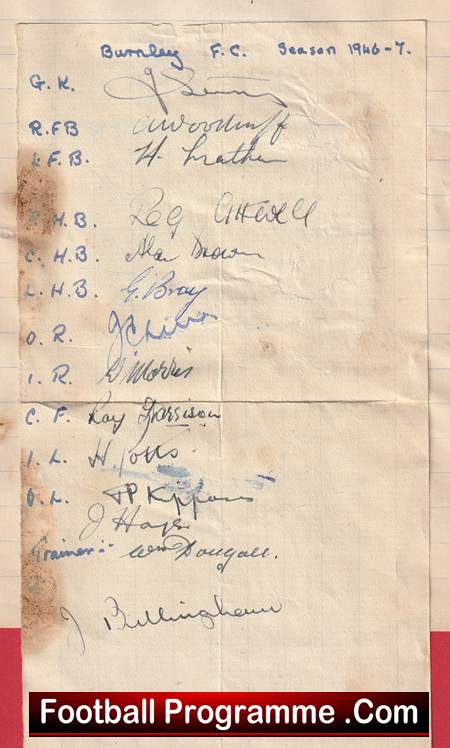 Burnley F.C. Season 1946-7.
G.K.
R.F.B A Woodruff
L.F.B. H. Mather
R.H.B. Reg Attwell
C.H.B. Alan Brown
L.H.B. G. Bray
O.R. J Chew
I.R. W Morris
C.F. Ray Harrison
I.L. H. Potts
O.L. F P Kippax
J Hays
Trainer:- Wm Dougall.
J Billingham
Football Programme .Com